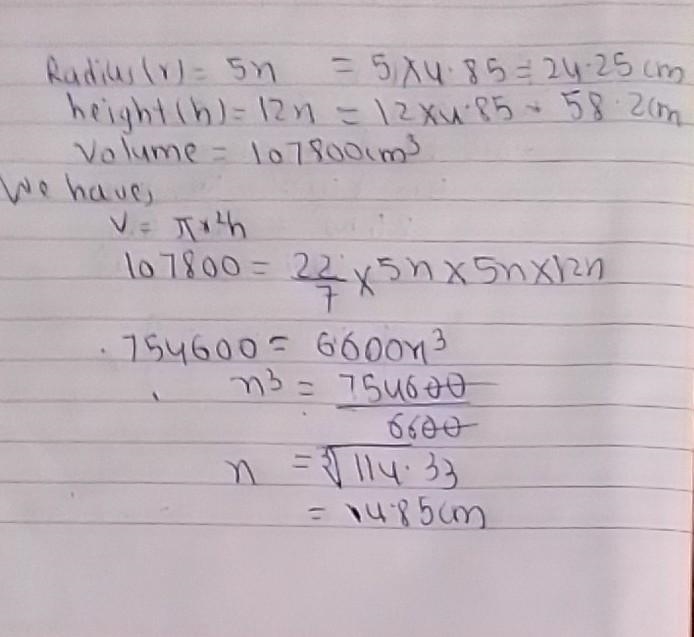 Radius(r) = 5n = 5×4.85 = 24.25cm
height(h) = 12n = 12×4.85 = 58.2cm
Volume = 107800cm³
We have,
V = πr²h
107800 = 22/7 × 5n × 5n × 12n
754600 = 6600n³
n³ = 754600/6600
n = ∛114.33
= 4.85cm